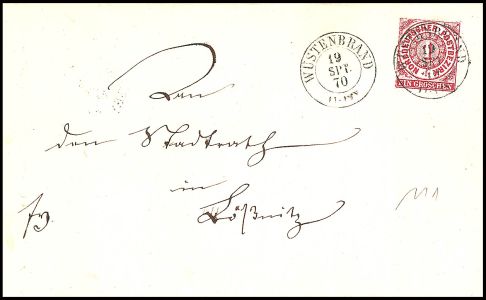 WÜSTENBRAND
19
SPT.
70
NORDDEUTSCHER POSTBEZIRK
EIN GROSCHEN
19
An
den Stadtrath
in
Lößnitz
fr.
111